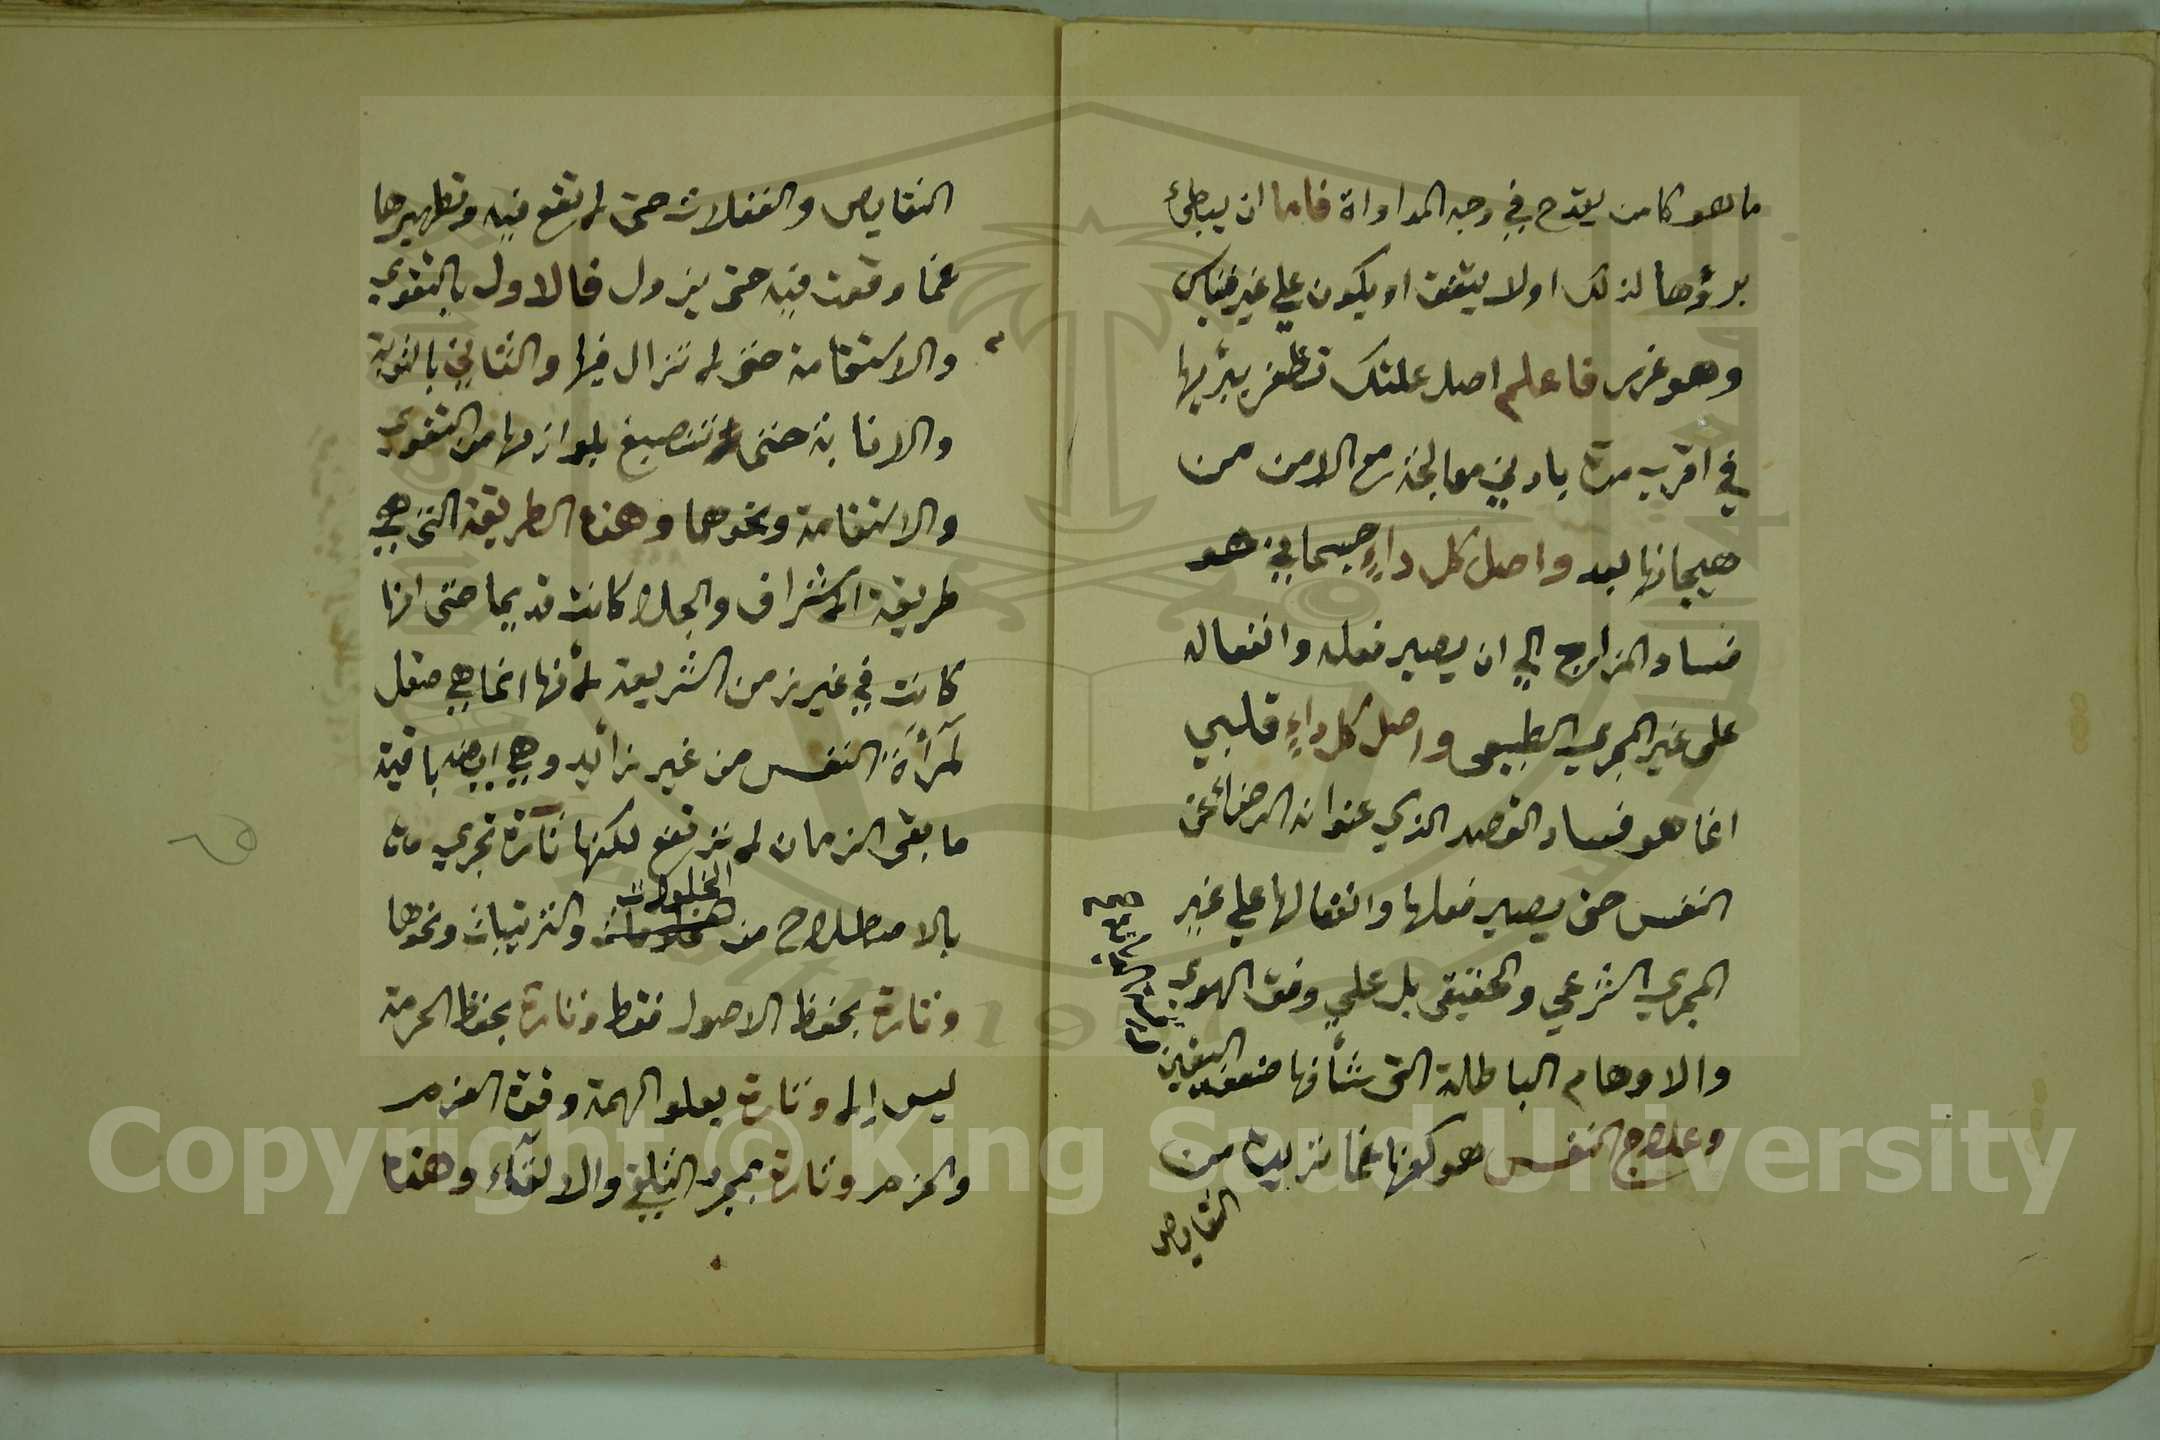 ما هو كامن يقدح في وجه المداواة فاما ان يبطئ
برؤها لذلك اولا يتفق او يكون علي غير قياس
وهو غرر فاعلم اصل علتك تظفر ببريها
في اقرب مدة بادني معالجة مع الامن من
هيجانها بعد واصل كل داءٍ جسماني هو
فساد المزاج الي ان يصير فعله وانفعاله
على غير المجري الطبيعى واصل كل داءٍ قلبي
انما هو فساد القصد الذي عنوانه الرضاء عن
النفس حتى يصير فعلها وانفعالها علي غير
المجري الشرعي والحقيقى بل علي وفق الهوي
والاوهام الباطلة التى شأنها ضعف اليقين
وعلاج النفس هو كفها عما تريده من
النقايص
النقايص والغفلات حتى لا تقع فيه وتطهيرها
عما وقعت فيه حتى يزول فالاول بالتقوي
والاستقامة حتى لا تزال فيها والثاني بالتوبة
والانابة حتى تنصبغ بلوازمها من التقوي
والاستقامة ونحوهما وهذه الطريقة التى هي
طريقة الاشراف والجلاء كانت قديما حتى انها
كانت في غير زمن الشريعة لأنها انما هي صقل
لمرآة النفس من غير زائد وهي ايضا باقية
ما بقى الزمان لا ترتفع لكنها تارة تجري
بالاصطلاح من الخلوات والترتيبات ونحوها
وتارة بحفظ الاصول فقط وتارة بحفظ الحرمة
ليس إلا وتارة بعلو الهمة وقوة العزم
والحزم وتارة بمجرد التلقي والالقاء وهذه
Copyright © King Saud University